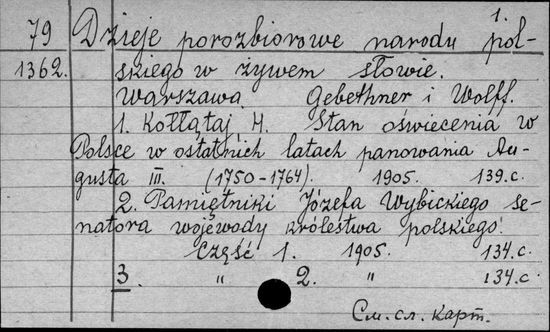 1.
79 Dzieje porozbiorowe narodu pol-
1362. skiego w żywem słowie.
Warszawa. Gebethner i Wolff.
1. Kołłątaj H. Stan oświecenia w
Polsce w ostatnich latach panowania Au-
gusta III. (1750-1764). 1905. 139.c.
2. Pamiętniki Józefa Wybickiego se-
natora wojewody królestwa polskiego.
Część 1. 1905. 134.c.
3. " 2. " 134.c.
См. сл. карт.